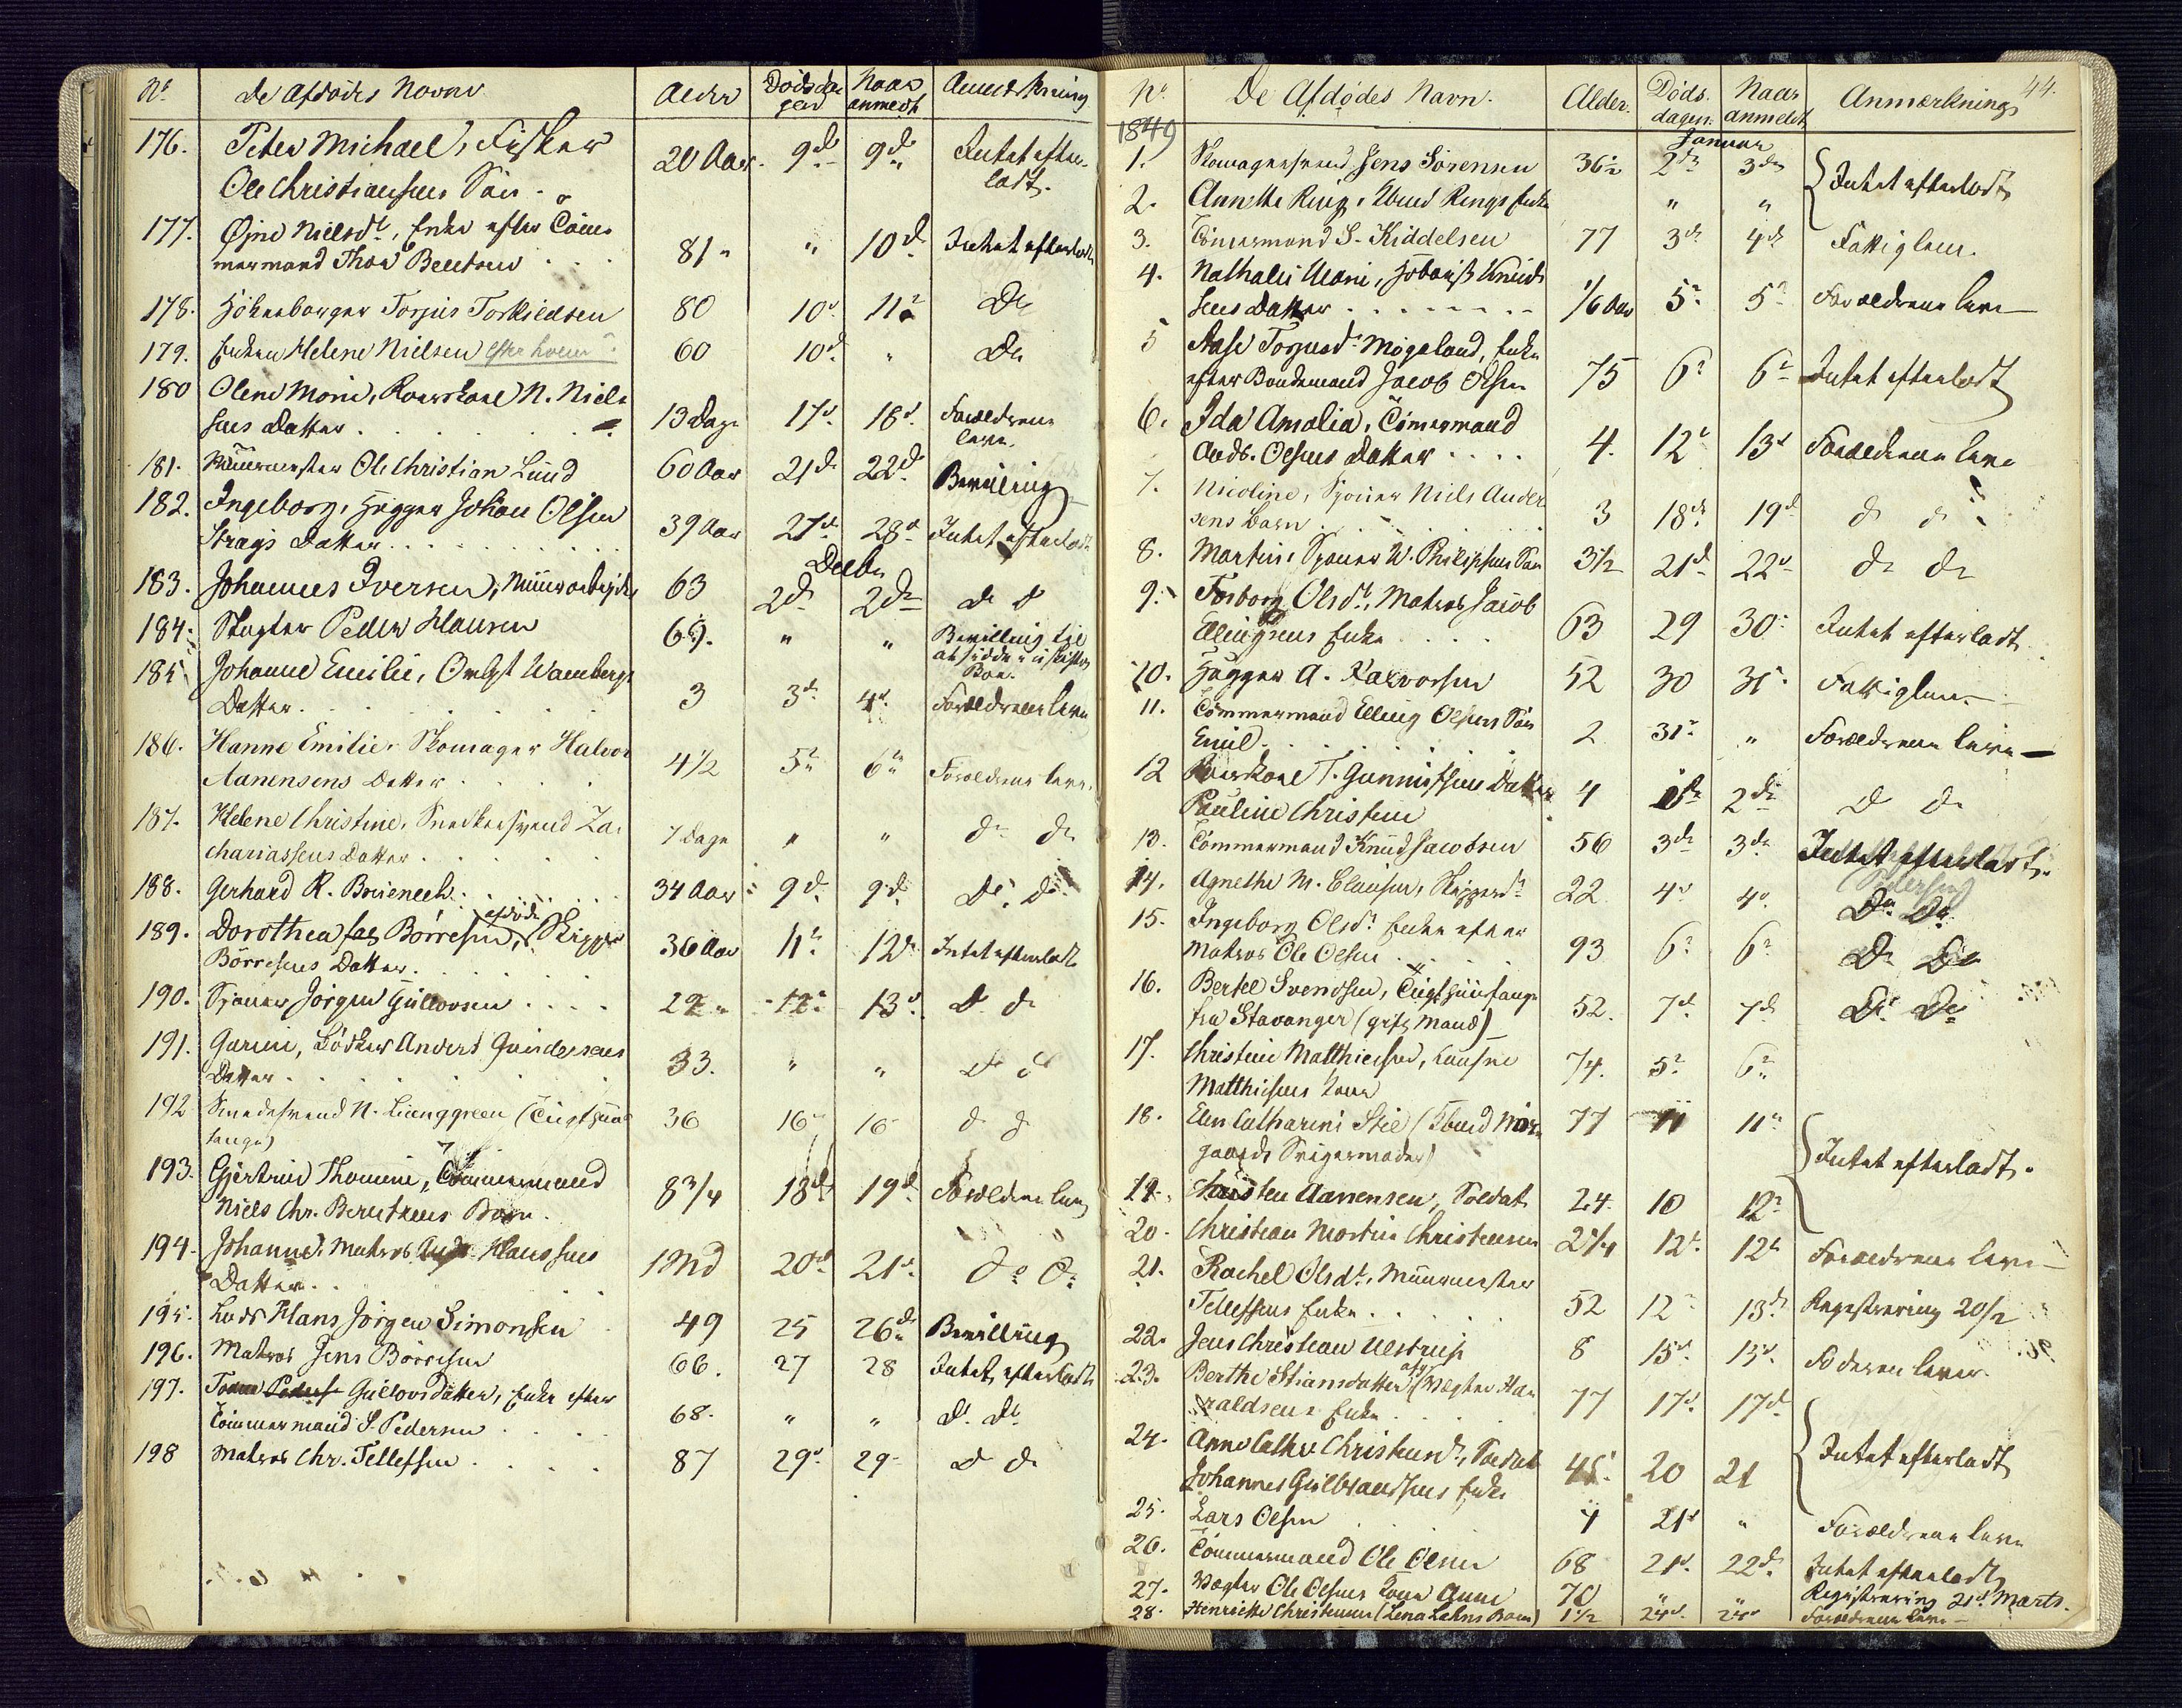 No De Afdødes Navne Alder Dødsda- Naar Anmærkning
gen anmeldt
176. Peter Michael, Fisker 20 Aar. 9de 9de Intet efter-
Ole Christiansens Søn. ladt.
177. Nielsdt, Enke efter Töm-
mermand Thos Beentsen 81 " 10de Intet efterladt
178. Torjus Torkildsen 80 10d 11te Do
179. Enken Helene Nielsen 60 10d " Do
180 Olene Marie, N. Niel-
sens Datter 13 Dage 17d 18d Forældrene
leve.
181. Muurmester Ole Christian Lund 60 Aar 21d 22d Bevilling
182. Ingeborg, Johan Olsen
Strays Datter 39 Aar 27d 28d Intet efterladt
Decbr
183. Johannes Iversen, Muurarbejder 63 2de 2de do do
184. Slagter Peder Hansen 69. " " Bevilling til
at sidde i uskiftet
Boe.
185 Johanne Emilie, Wambergs
Datter 3 3d 4d Forældrene leve
186. Hanne Emilie, Skomager Halvor
Aanensens Datter 4 1/2 5te 6te Forældrene leve.
187. Helene Christine, Snedkersvend Za-
chariassens Datter 7 Dage " " do do
188. Gerhard R. 34 Aar 9d 9d Do Do
189. Dorothea Børresen, Skipper
Børresens Datter 36 Aar 11te 12te Intet efterladt
190. Jörgen Gullovsen 22 12te 13d do do
191. Gurine, Bödker Anders Gundersens
Datter 33. " " do do
192 Smedesvend N. (Tugthuus-
fange) 36 16 16 do do
193. Gjertrud Thomine, Tömmermand
Niels Chr. Berntsens Barn. 8 3/4 18d 19d Forældrene leve
194. Johanne, Matros Hanssens
Datter 1 Md 20d 21d do do
195. Lods Hans Jörgen Simonsen 49 25 26d Bevilling
196. Matros Jens Börresen 66. 27 28 Intet efterladt
197. Gullovsdatter, Enke efter
Tömmermand S. Pedersen 68. " " do do
198 Matros Chr. Tellefsen 87 29d 29 do do
44.
No De Afdödes Navn. Alder. Döds- Naar Anmærkning
dagen. anmeldt
1849 Januar
1. Skomagersvend Jens Sörensen 36 1/2 2den 3die Intet efterladt
2. Annette Ring, Rings Enke " "
3. Tömermand S. Kiddelsen 77 3d 4de Fattiglem.
4. Nathalie Marie, Knud-
sens Datter 1/6 Aar 5te 5te Forældrene leve
5 Aase Torjusdt Mögeland, Enke
efter Bondemand Jacob Olsen 75 6te 6te Intet efterladt
6. Ida Amalia, Tömermand
Andr. Olsens Datter 4. 12te 13d Forældrene leve
7. Nicoline, Niels Ander-
sens barn 3 18de 19d do do
8. Martin, W. Philipsens Søn 3 1/2 21d 22d do do
9. Torborg Olsdt, Matros Jacob
Ellingsens Enke 63 29 30 Intet efterladt
10. A. Halvorsen 52 30 31 Fattiglem.
11. Tömmermand Elling Olsens Søn
Emil 2 31te " Forældrene leve
12 T. Gunnufsens Datter
Pauline Christine 4 1ste 2de do do
13. Tömmermand Knud Jacobsen 56 3die 3die Intet efterladt.
14. Agnethe M. Clausen, 22 4d 4d Do Do
Pedersen
15. Ingeborg Olsdt Enke efter
Matros Ole Olsen 93 6te 6te Do Do
16. Bertel Svendsen, Tugthuusfange
fra Stavanger (gift Mand) 52. 7d 7d Do Do
17. Christine Matthiesen,
Matthiesens Kone 74. 5te 6te
18. Catharine Stie
Svigermoder) 77 11 11te Intet efterladt.
19. Christen Aanensen, Soldat 24. 10 12te
20. Christian Martin Christensen 2 1/4 12te 12te Forældrene leve
21. Rachel Olsdt, Muurmester
Tellefsens Enke 52 12te 13de Registrering 20/2
22. Jens Christian Ulstrup 8 15d 15d Faderen lever
23. Berthe Stiansdatter, afg. Vægter Ha-
raldsens Enke 77 17d 17d Intet efterladt
24. Anne Cathr. Christensdt, Soldat
Johannes Gulbrandsens Enke 45 20 21
25. Lars Olsen 4 21d " Forældrene leve
26. Tömmermand Ole Olsen 68 21d 22d Intet efterladt
27. Vægter Ole Olsens Kone Anne 70 " " Registrering 21d Marts.
28. Henriette Christensen (Lena Barn) 1 1/2 24d 24d Forældrene leve